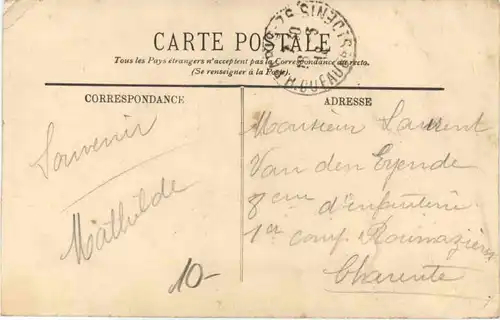 CARTE POSTALE
Tous les Pays étrangers n'acceptent pas la Correspondance au recto.
(Se renseigner à la Poste).
CORRESPONDANCE
Souvenir
Mathilde
10-
ADRESSE
Monsieur Laurent
Van den Eyende
8em d'infanterie
1er comp. Roumazières
Charente